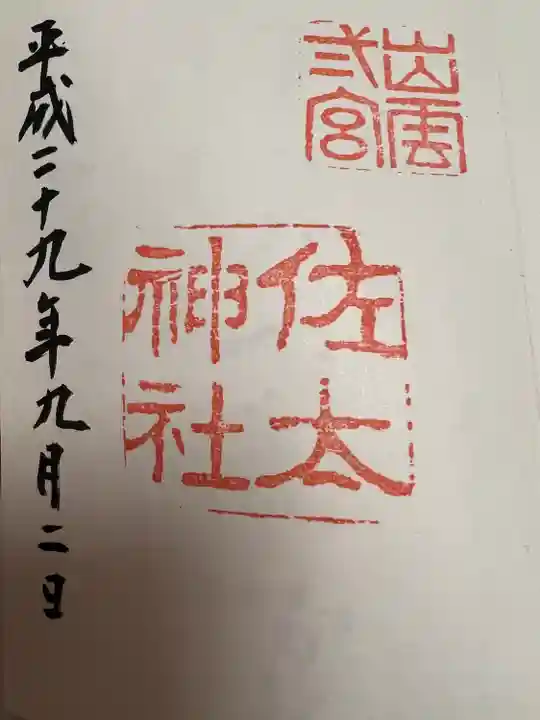 出雲
弎宮
佐太
神社
平成二十九年九月二日